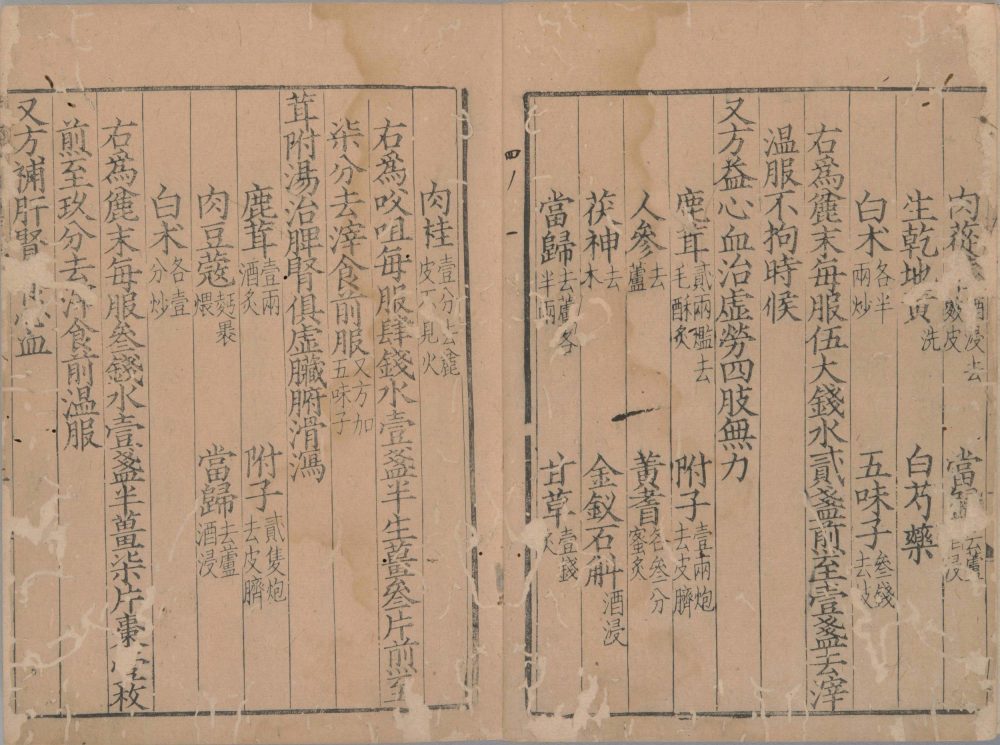 肉蓯 酒浸去皺皮 當歸 去蘆酒浸
生乾地黃 洗 白芍藥
白朮 各半兩炒 五味子 叁錢去
右爲麄末每服伍大錢水貳盞煎至壹盞去滓
温服不拘時候
又方益心血治虛勞四肢無力
鹿茸 貳兩爁去毛酥炙 附子 壹兩炮去皮臍
人參 去蘆 黃耆 各叁分蜜炙
茯神 去木 金釵石斛 酒浸
當歸 去蘆各半兩 甘草 壹錢炙
四
肉桂 壹分去麄皮不見火
右爲㕮咀每服肆錢水壹盞半生薑叁片煎至
柒分去滓食前服 又方加五味子
茸附湯治脾腎俱虛臟腑滑瀉
鹿茸 壹兩酒炙 附子 貳隻炮去皮臍
肉豆蔻 麪裹煨 當歸 去蘆酒浸
白朮 各壹分炒
右爲麄末每服叁錢水壹盞半薑柒片棗壹枚
煎至玖分去滓食前温服
又方補肝腎 血